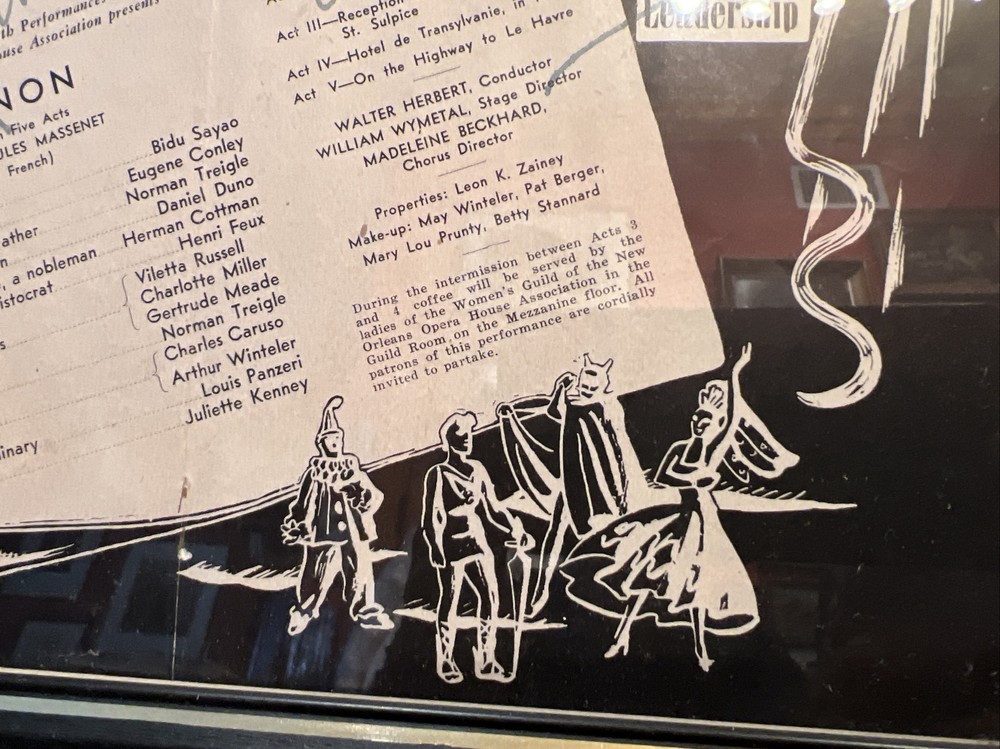 th Performance
use Association presents
NON
Five Acts
ULES MASSENET
French)
Bidu Sayao
Eugene Conley
Norman Treigle
ather
Daniel Duno
n
Herman Cottman
, a nobleman
Henri Feux
istocrat
Viletta Russell
Charlotte Miller
Gertrude Meade
Norman Treigle
s
Charles Caruso
Arthur Winteler
Louis Panzeri
Juliette Kenney
inary
Act III—Reception
St. Sulpice
Act IV—Hotel de Transylvanie, in
Act V—On the Highway to Le Havre
WALTER HERBERT, Conductor
WILLIAM WYMETAL, Stage Director
MADELEINE BECKHARD,
Chorus Director
Properties: Leon K. Zainey
Make-up: May Winteler, Pat Berger,
Mary Lou Prunty, Betty Stannard
During the intermission between Acts 3
and 4 coffee will be served by the
ladies of the Women's Guild of the New
Orleans Opera House Association in the
Guild Room, on the Mezzanine floor. All
patrons of this performance are cordially
invited to partake.
Leadership